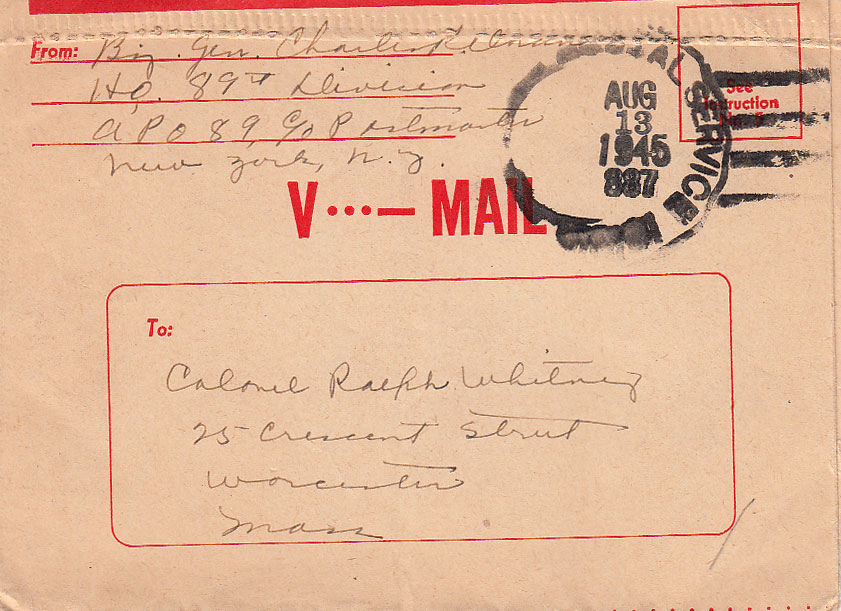 From: Brig. Gen. Charles
Hq. 89th Division
A P O 89, c/o Postmaster
New York, N.Y.
See
Instruction
V ···— MAIL
AUG
13
1945
887
SERVICE
To:
Colonel Ralph Whitney
25 Crescent Street
Worcester
Mass